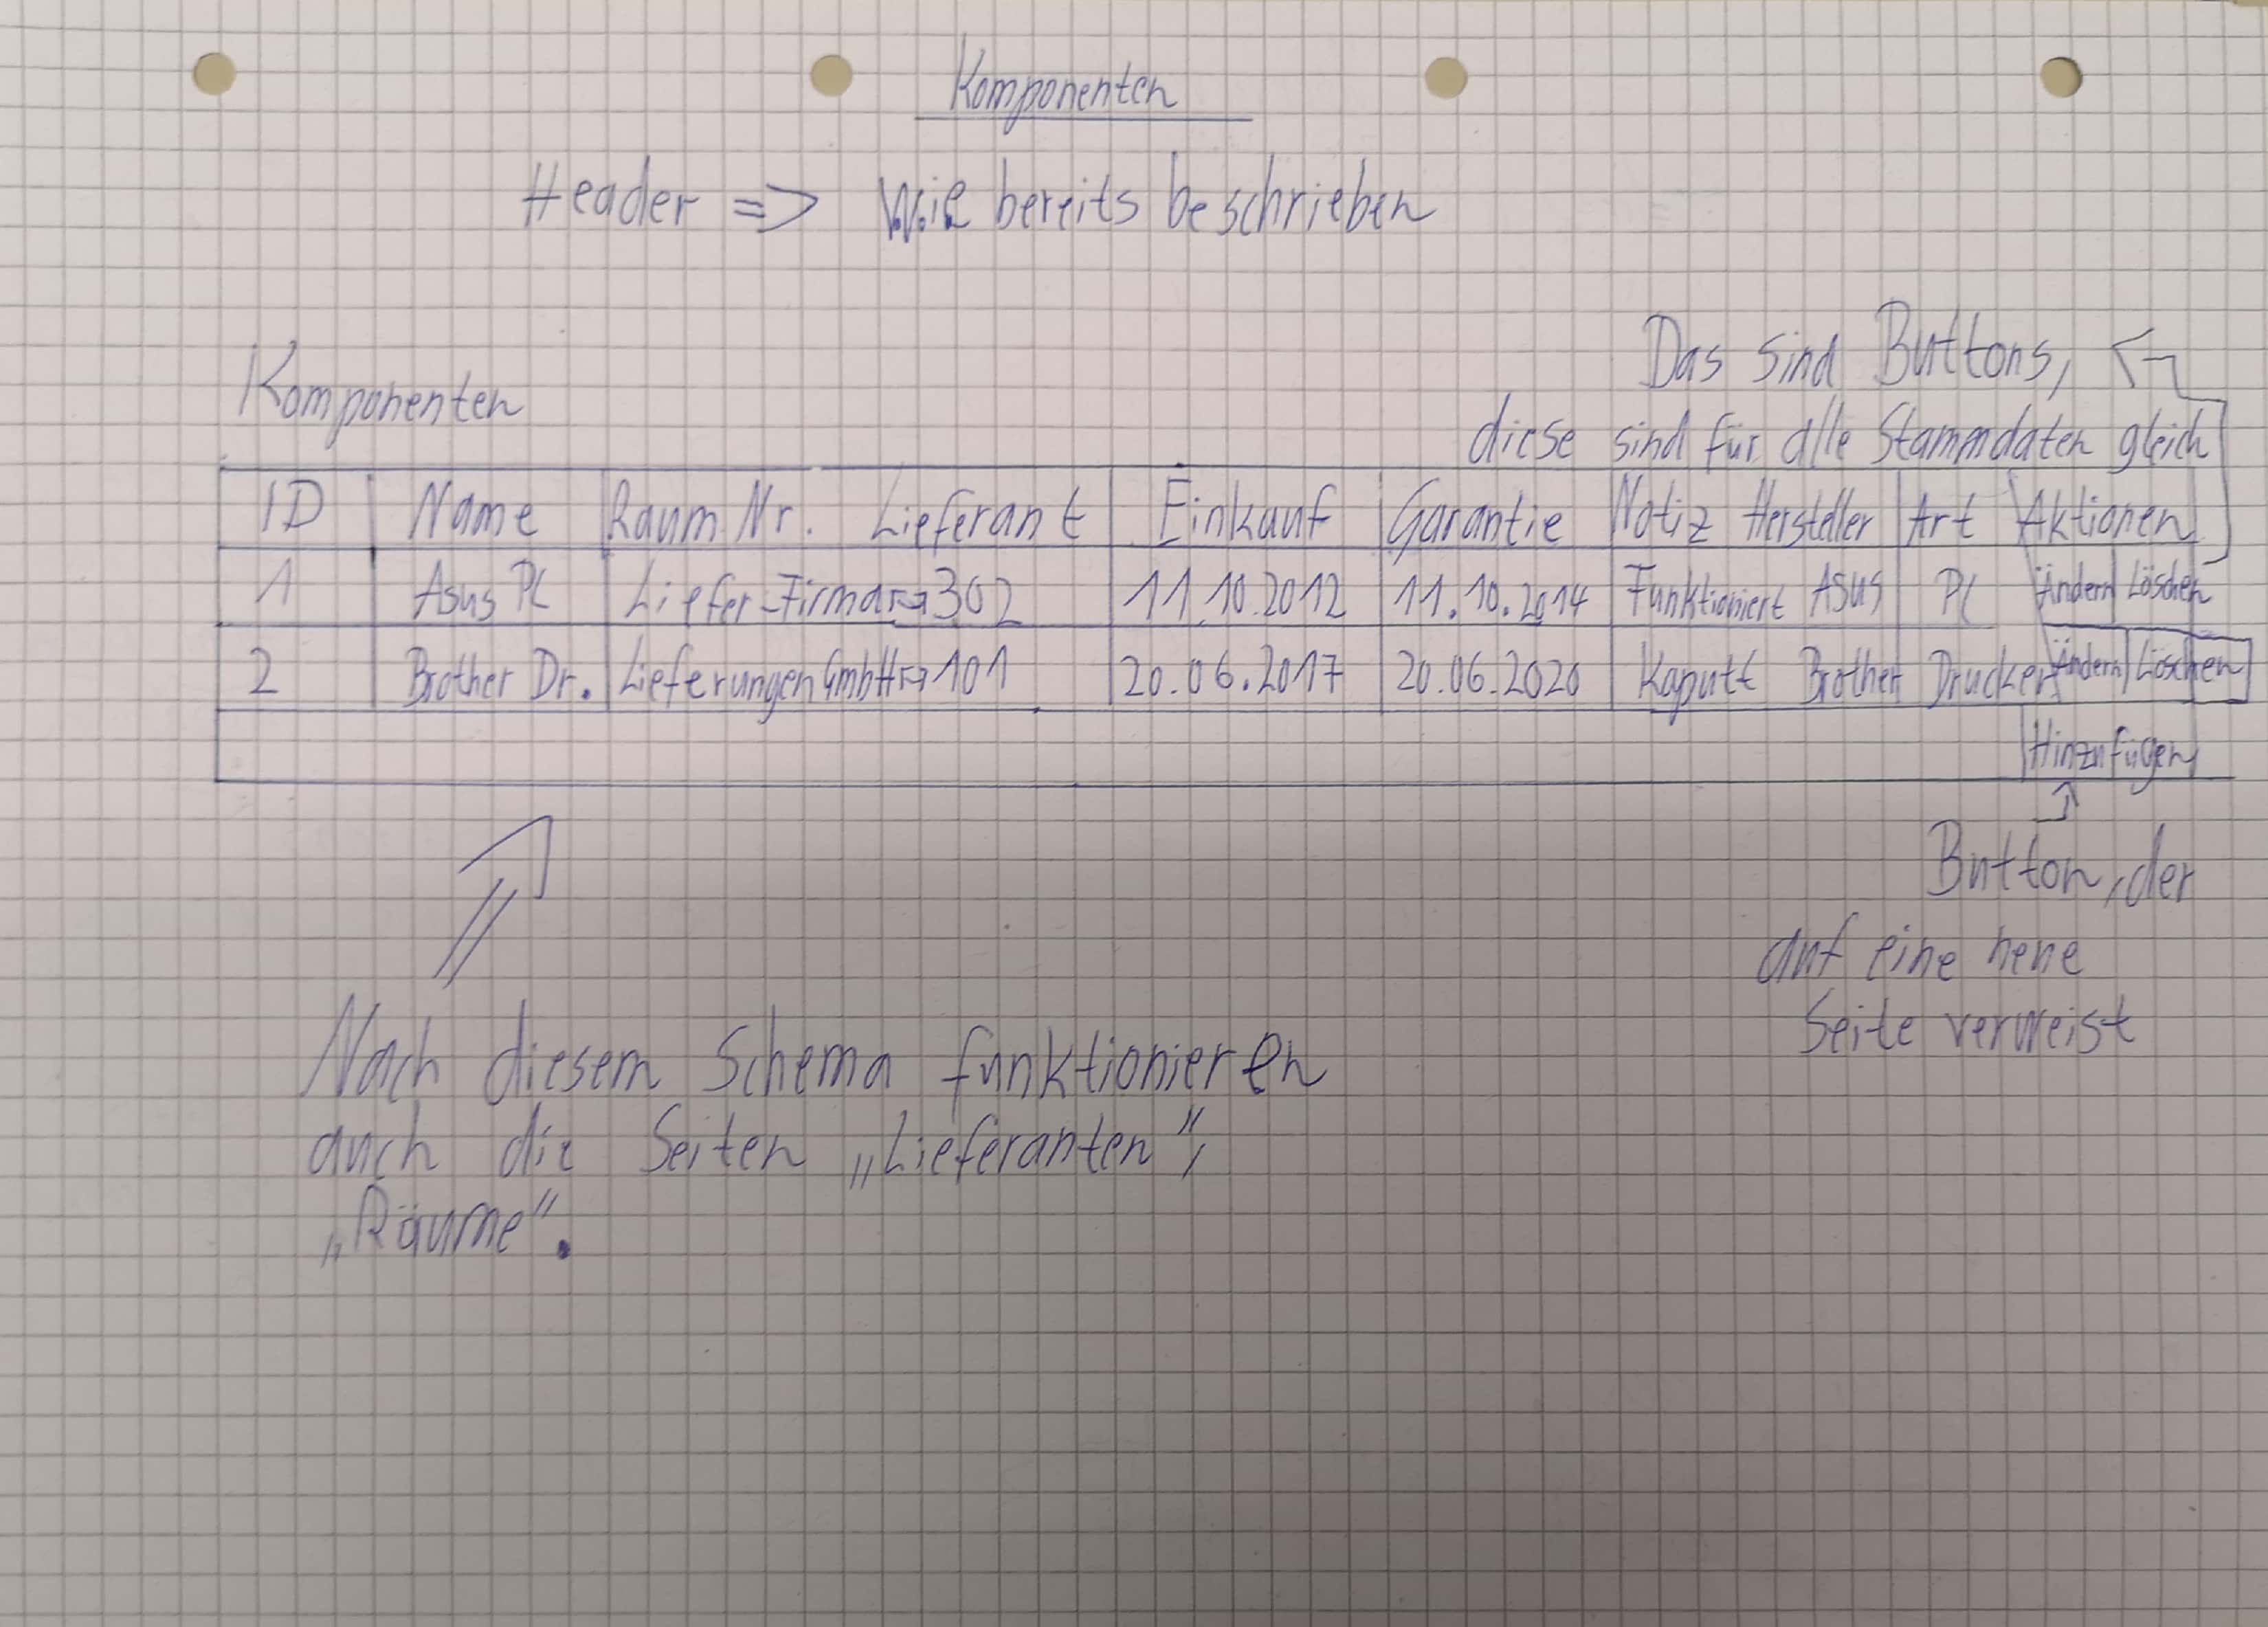 Komponenten
Header => Wie bereits beschrieben
Das sind Buttons,
diese sind für alle Stammdaten gleich
Komponenten
ID Name Raum Nr. Lieferant Einkauf Garantie Notiz Hersteller Art Aktionen
1 Asus PC Liefer-Firma 302 11.10.2012 11.10.2014 Funktioniert Asus PC Ändern Löschen
2 Brother Dr. Lieferungen GmbH 101 20.06.2017 20.06.2020 Kaputt Brother Drucker Ändern Löschen
Hinzufügen
Button, der
auf eine neue
Seite verweist
Nach diesem Schema funktionieren
auch die Seiten „Lieferanten",
„Räume".